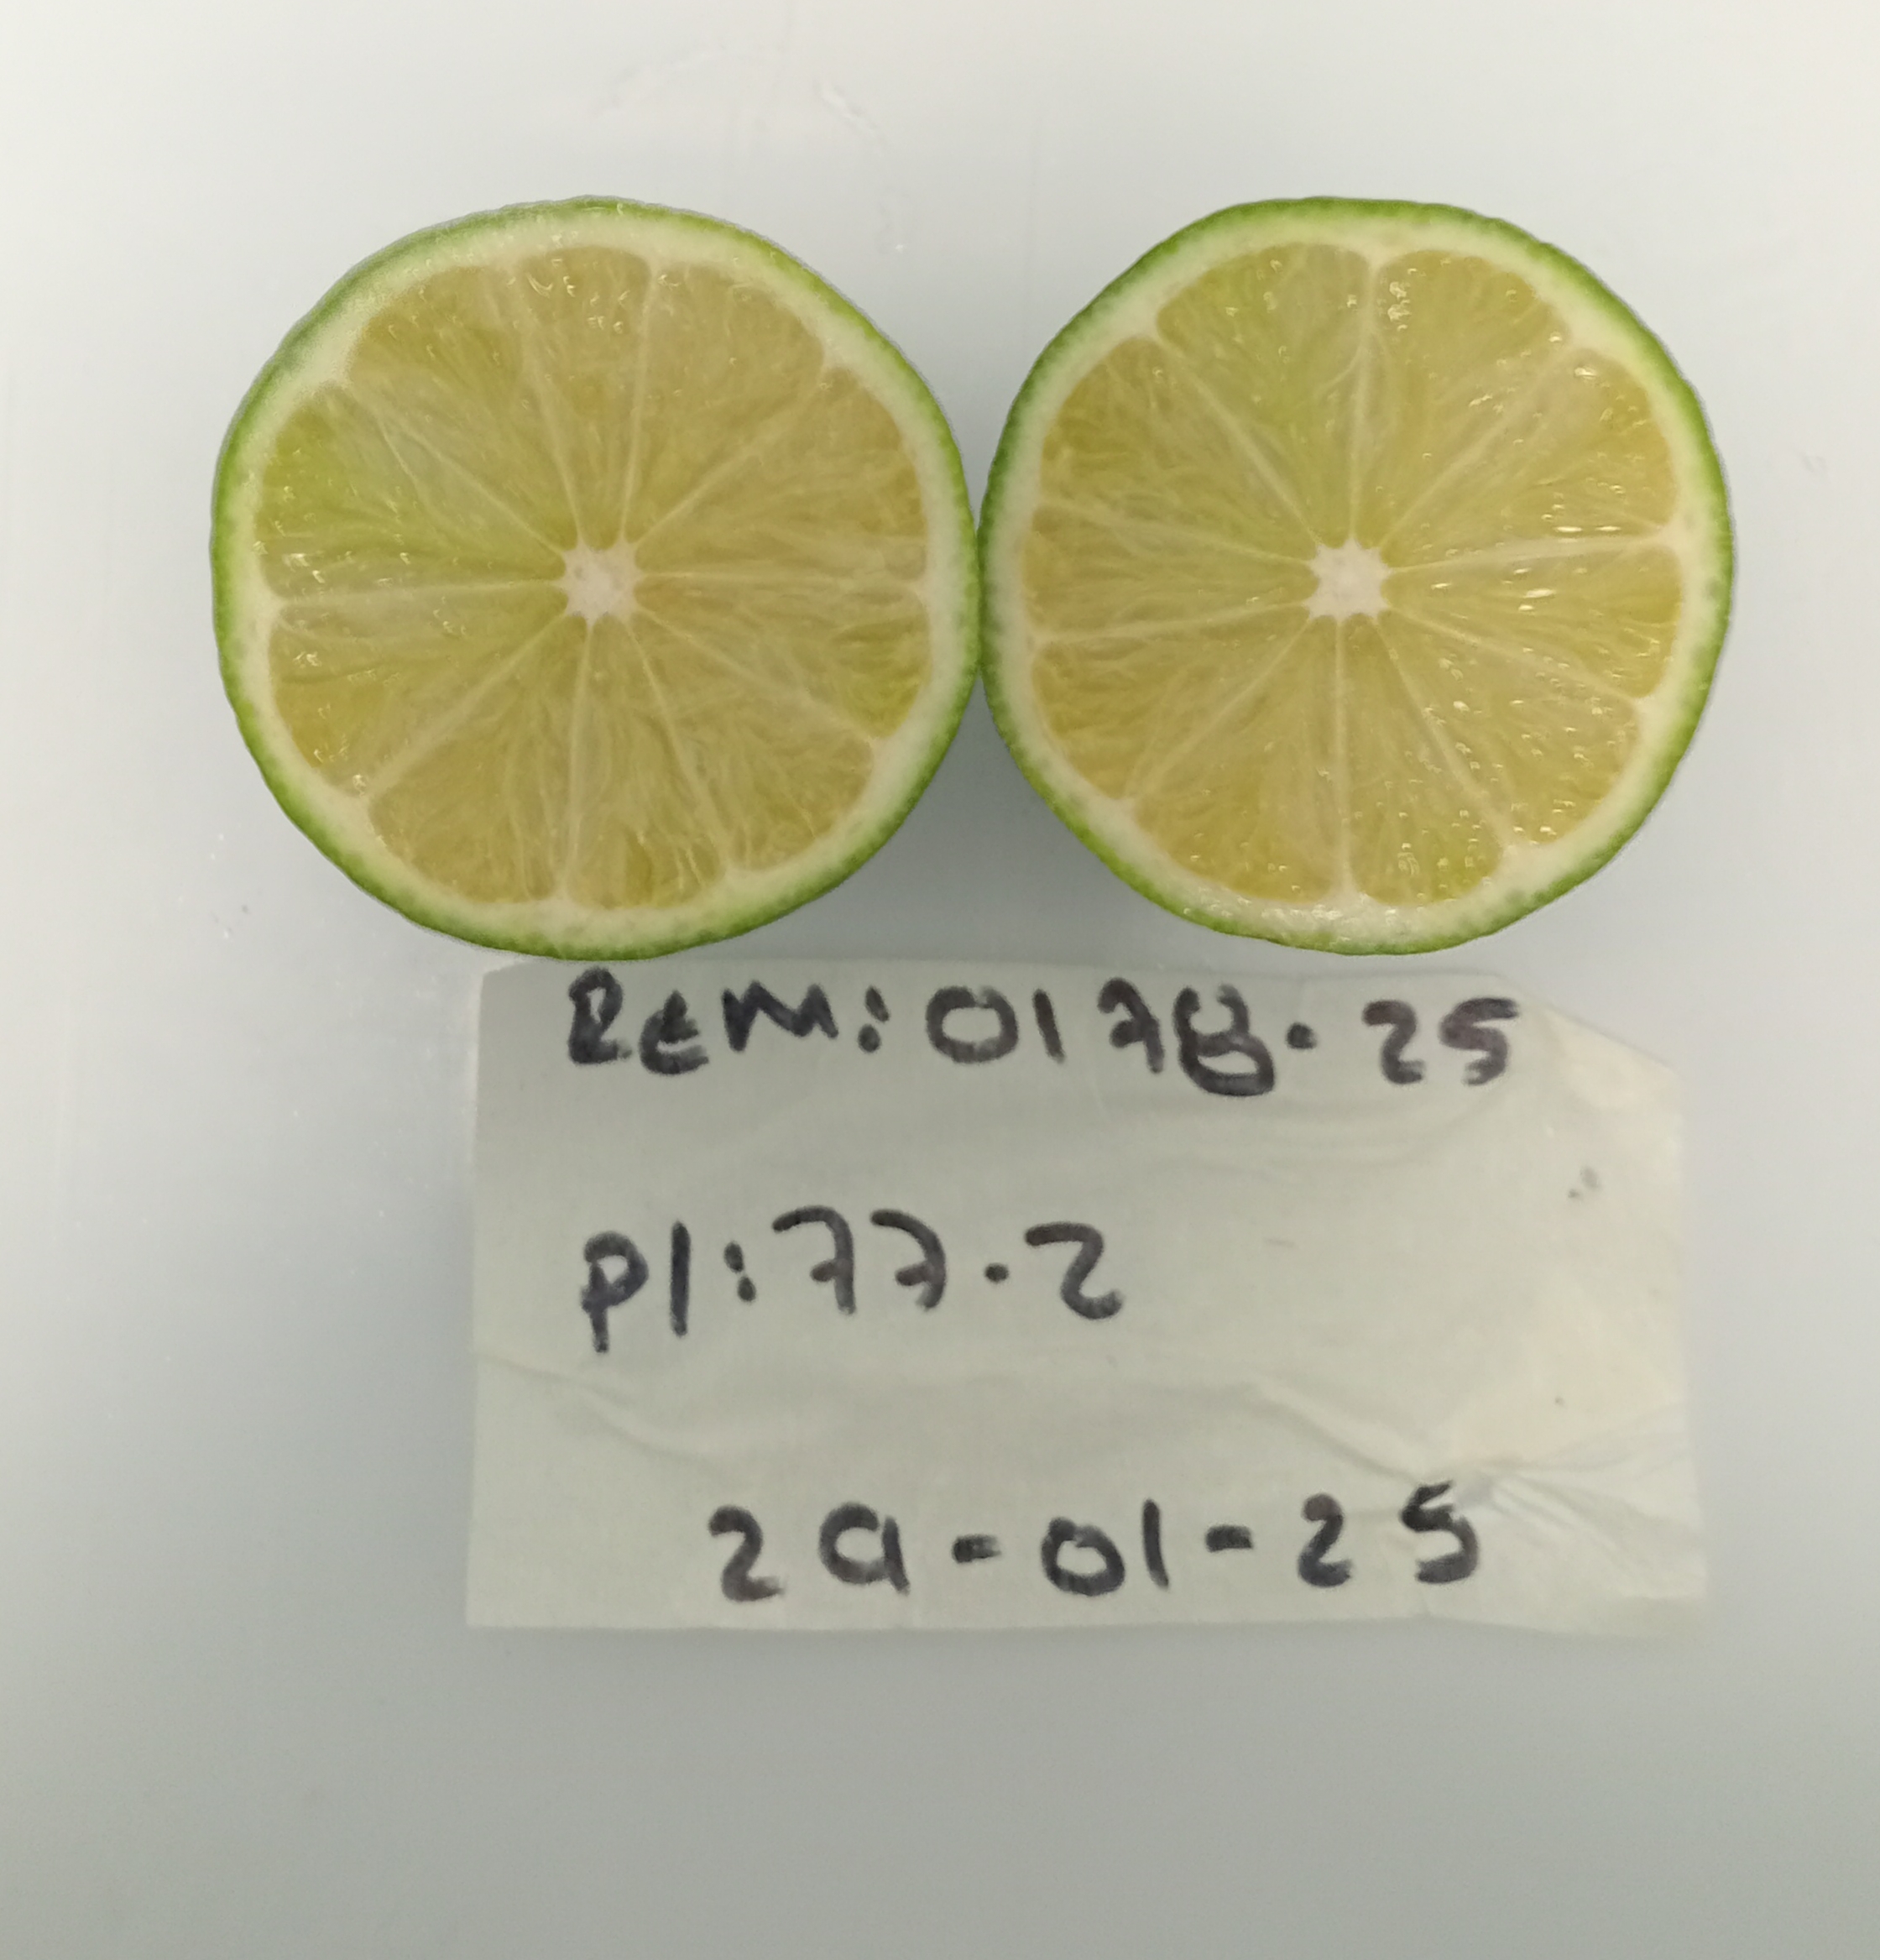 REM: 0178. 25
Pl: 77.2
29-01-25